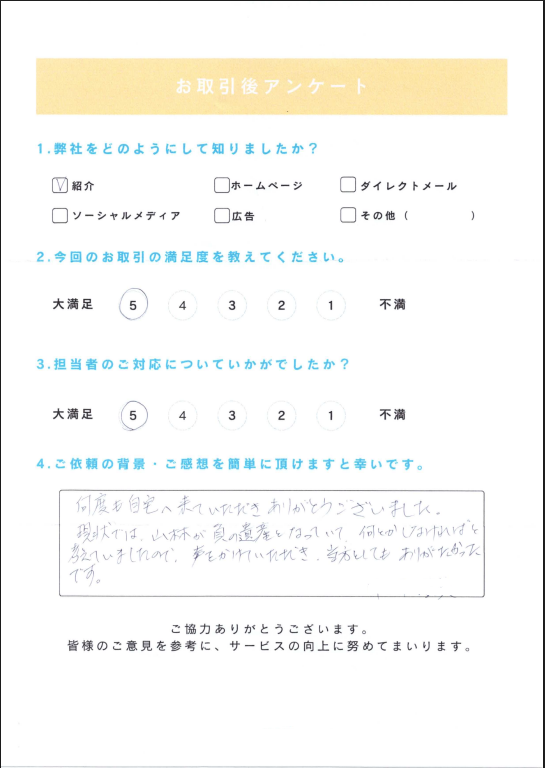 お取引後アンケート
1.弊社をどのようにして知りましたか？
紹介 ホームページ ダイレクトメール
ソーシャルメディア 広告 その他（ ）
2.今回のお取引の満足度を教えてください。
大満足 5 4 3 2 1 不満
3.担当者のご対応についていかがでしたか？
大満足 5 4 3 2 1 不満
4.ご依頼の背景・ご感想を簡単に頂けますと幸いです。
何度も自宅へ来ていただきありがとうございました。
現状では、山林が負の遺産となっていて、何とかしなければと
考えていましたので、声をかけていただき、当方としてもありがたかった
です。
ご協力ありがとうございます。
皆様のご意見を参考に、サービスの向上に努めてまいります。